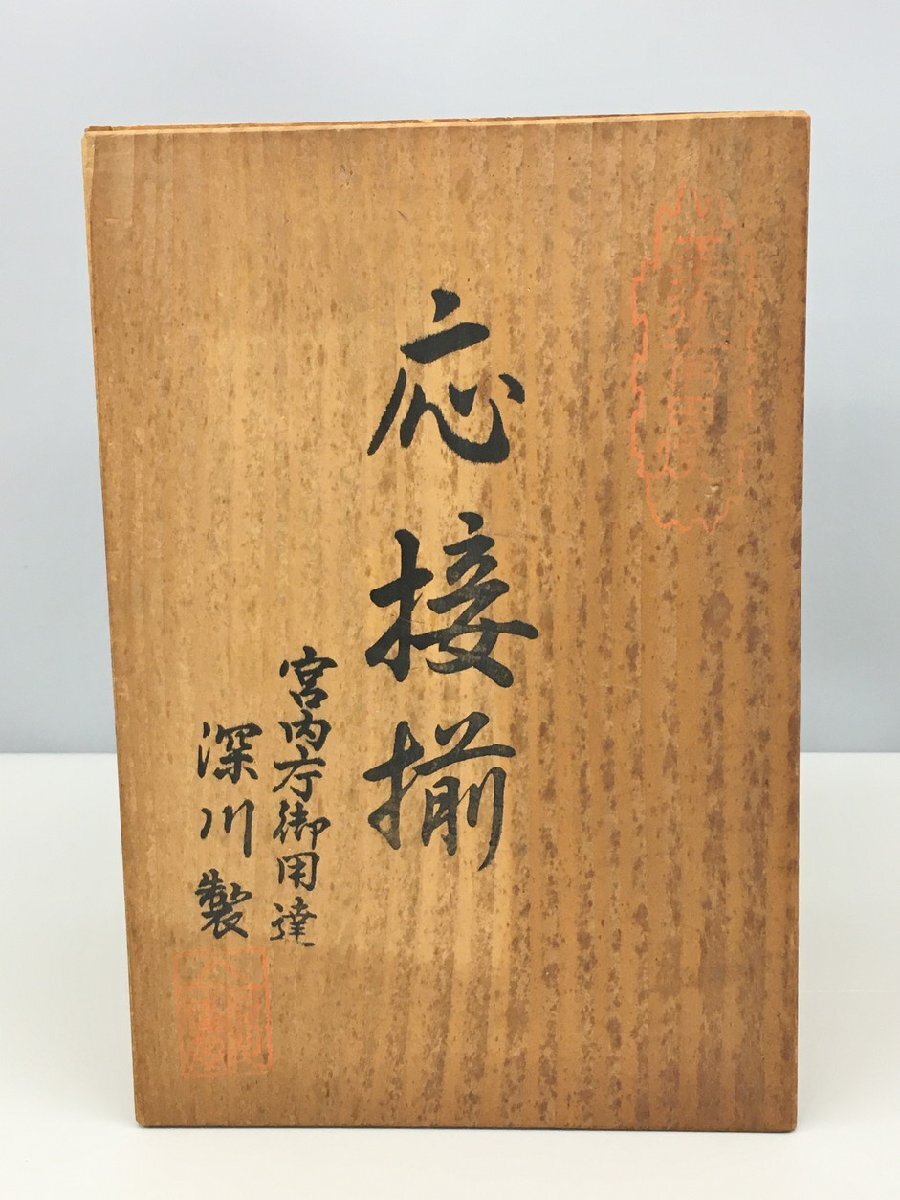 応接揃
宮内庁御用達
深川製